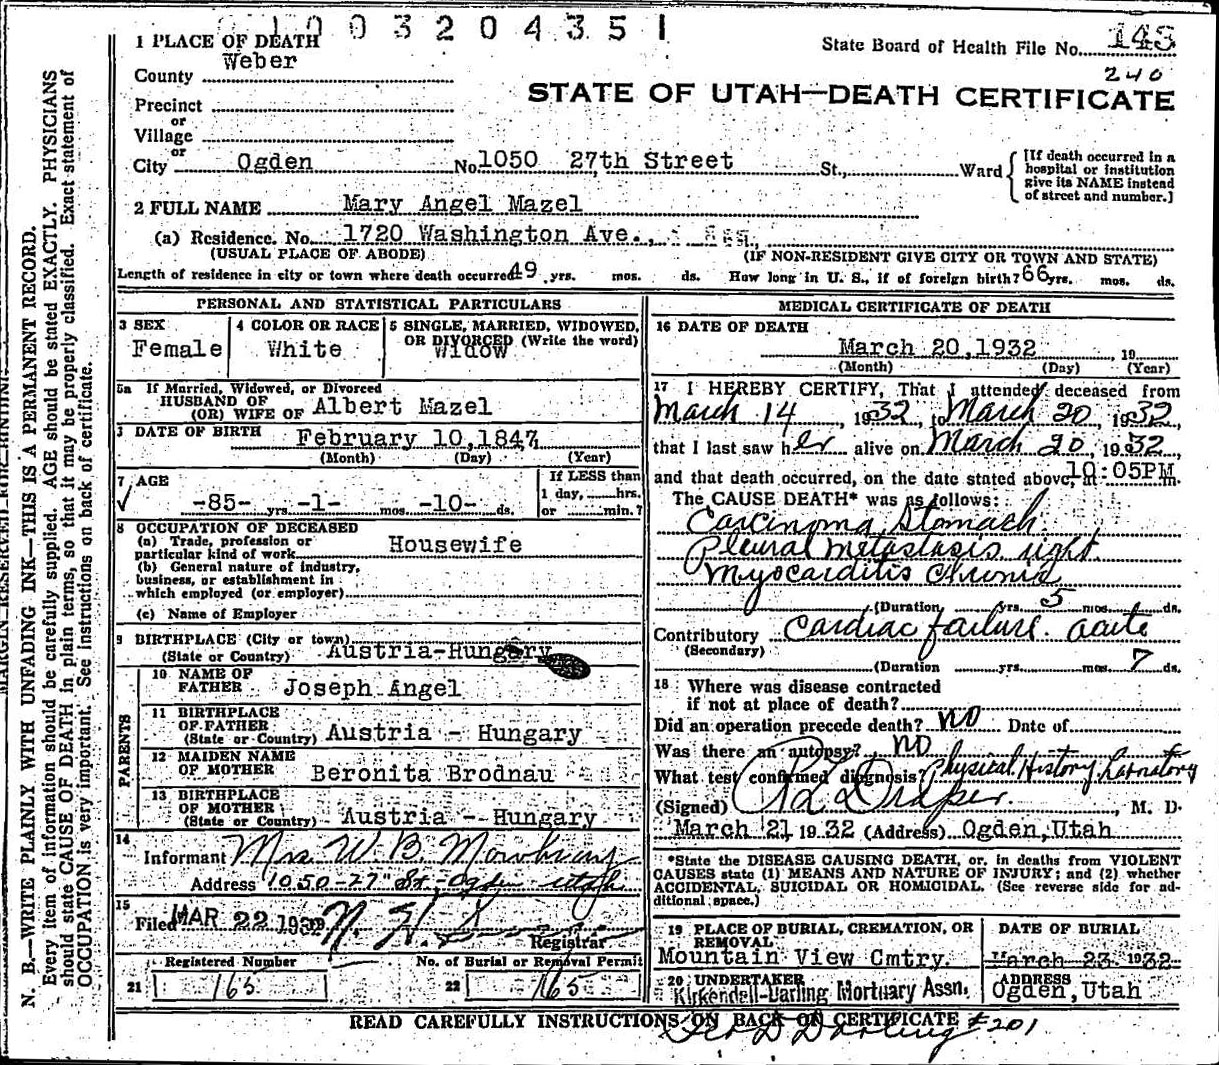 0 1 0 0 3 2 0 4 3 5 1
1 PLACE OF DEATH
County Weber
Precinct
or
Village
or
City Ogden No. 1050 27th Street St., Ward
[If death occurred in a
hospital or institution
give its NAME instead
of street and number.]
State Board of Health File No. 143
240
STATE OF UTAH—DEATH CERTIFICATE
2 FULL NAME Mary Angel Mazel
(a) Residence. No. 1720 Washington Ave., Res,
(USUAL PLACE OF ABODE) (IF NON-RESIDENT GIVE CITY OR TOWN AND STATE)
Length of residence in city or town where death occurred 49 yrs. mos. ds. How long in U. S., if of foreign birth? 66 yrs. mos. ds.
PERSONAL AND STATISTICAL PARTICULARS
3 SEX Female
4 COLOR OR RACE White
5 SINGLE, MARRIED, WIDOWED,
OR DIVORCED (Write the word)
Widow
5a If Married, Widowed, or Divorced
HUSBAND OF
(OR) WIFE OF Albert Mazel
DATE OF BIRTH February 10, 1847
(Month) (Day) (Year)
7 AGE -85- yrs. -1- mos. -10- ds.
If LESS than
1 day, hrs.
or min.?
8 OCCUPATION OF DECEASED
(a) Trade, profession or
particular kind of work Housewife
(b) General nature of industry,
business, or establishment in
which employed (or employer)
(c) Name of Employer
9 BIRTHPLACE (City or town)
(State or Country) Austria-Hungary
PARENTS
10 NAME OF
FATHER Joseph Angel
11 BIRTHPLACE
OF FATHER
(State or Country) Austria - Hungary
12 MAIDEN NAME
OF MOTHER Beronita Brodnau
13 BIRTHPLACE
OF MOTHER
(State or Country) Austria - Hungary
14
Informant Mrs. W. B. Mowbray
Address 1050-27" St., Ogden Utah
15
Filed MAR 22 1932 N. H.
Registrar
Registered Number
21 165
No. of Burial or Removal Permit
22 165
MEDICAL CERTIFICATE OF DEATH
16 DATE OF DEATH
March 20, 1932, 19
(Month) (Day) (Year)
17 I HEREBY CERTIFY, That I attended deceased from
March 14, 1932, to March 20, 1932,
that I last saw her alive on March 20, 1932,
and that death occurred, on the date stated above, at 10:05PM m.
The CAUSE DEATH* was as follows:
Carcinoma, Stomach.
Pleural metastasis right.
Myocarditis Chronic
(Duration yrs. 5 mos. ds.
Contributory Cardiac failure. acute
(Secondary)
(Duration yrs. mos. 7 ds.
18 Where was disease contracted
if not at place of death?
Did an operation precede death? NO Date of
Was there an autopsy? NO
What test confirmed diagnosis? Physical History Laboratory
(Signed) Draper, M. D.
March 21, 1932 (Address) Ogden, Utah
*State the DISEASE CAUSING DEATH, or, in deaths from VIOLENT
CAUSES state (1) MEANS AND NATURE OF INJURY; and (2) whether
ACCIDENTAL, SUICIDAL OR HOMICIDAL. (See reverse side for ad-
ditional space.)
19 PLACE OF BURIAL, CREMATION, OR
REMOVAL
Mountain View Cmtry.
DATE OF BURIAL
March 23, 1932
20 UNDERTAKER
Kirkendall-Darling Mortuary Assn.
ADDRESS
Ogden, Utah
READ CAREFULLY INSTRUCTIONS ON BACK OF CERTIFICATE
Geo D Darling #201
MARGIN RESERVED FOR BINDING
N. B.—WRITE PLAINLY WITH UNFADING INK—THIS IS A PERMANENT RECORD.
Every item of information should be carefully supplied. AGE should be stated EXACTLY. PHYSICIANS
should state CAUSE OF DEATH in plain terms, so that it may be properly classified. Exact statement of
OCCUPATION is very important. See instructions on back of certificate.